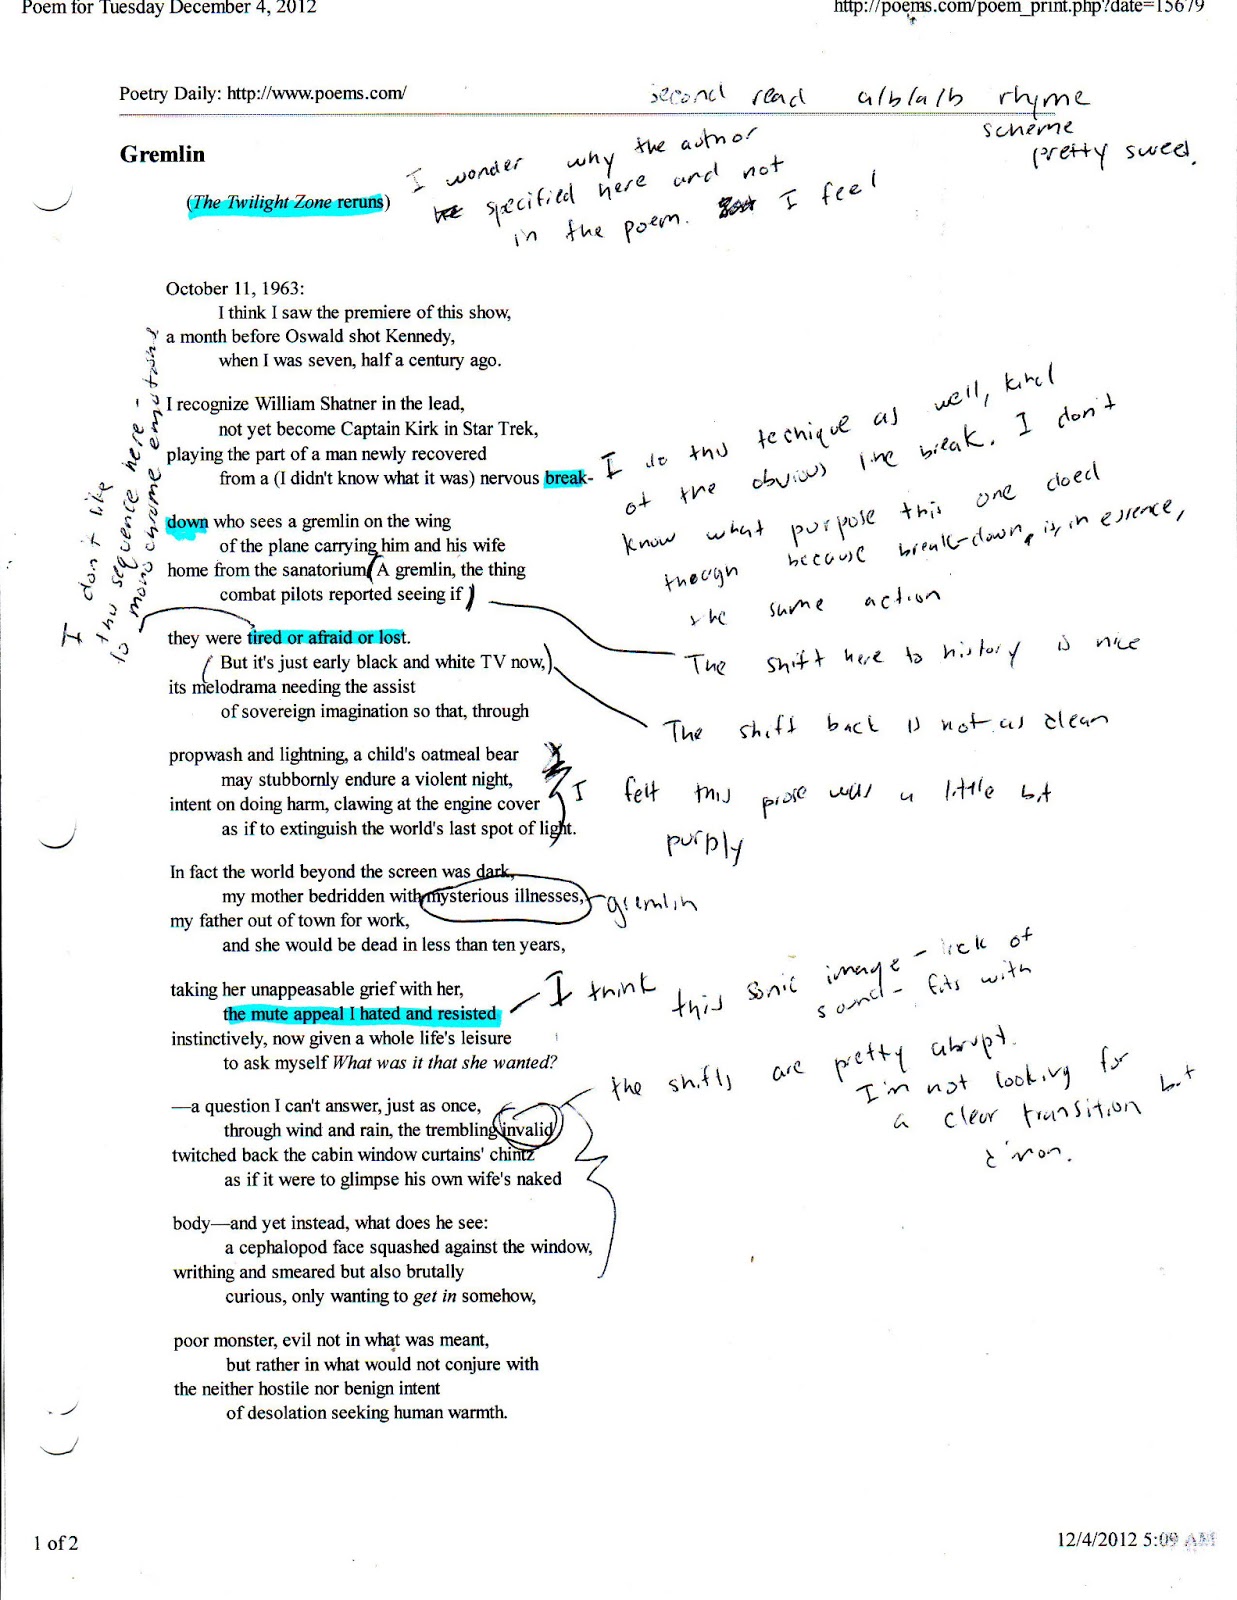 Poem for Tuesday December 4, 2012
http://poems.com/poem_print.php?date=15679
Poetry Daily: http://www.poems.com/
second read a/b/a/b rhyme
scheme
pretty sweet.
Gremlin
(The Twilight Zone reruns)
I wonder why the author
specified here and not
in the poem. I feel
October 11, 1963:
I think I saw the premiere of this show,
a month before Oswald shot Kennedy,
when I was seven, half a century ago.
I recognize William Shatner in the lead,
not yet become Captain Kirk in Star Trek,
playing the part of a man newly recovered
from a (I didn't know what it was) nervous break-
down who sees a gremlin on the wing
of the plane carrying him and his wife
home from the sanatorium. (A gremlin, the thing
combat pilots reported seeing if)
they were tired or afraid or lost.
(But it's just early black and white TV now,)
its melodrama needing the assist
of sovereign imagination so that, through
propwash and lightning, a child's oatmeal bear
may stubbornly endure a violent night,
intent on doing harm, clawing at the engine cover
as if to extinguish the world's last spot of light.
In fact the world beyond the screen was dark,
my mother bedridden with mysterious illnesses,
my father out of town for work,
and she would be dead in less than ten years,
taking her unappeasable grief with her,
the mute appeal I hated and resisted
instinctively, now given a whole life's leisure
to ask myself What was it that she wanted?
—a question I can't answer, just as once,
through wind and rain, the trembling invalid
twitched back the cabin window curtains' chintz
as if it were to glimpse his own wife's naked
body—and yet instead, what does he see:
a cephalopod face squashed against the window,
writhing and smeared but also brutally
curious, only wanting to get in somehow,
poor monster, evil not in what was meant,
but rather in what would not conjure with
the neither hostile nor benign intent
of desolation seeking human warmth.
I don't like
this sequence here -
to monochrome emotions
I do this technique as well, kind
of the obvious line break. I don't
know what purpose this one does
though because break-down, is, in essence,
the same action
The shift here to history is nice
The shift back is not as clean
I felt this prose was a little bit
purply
gremlin
I think this sonic image - lack of
sound - fits with
the shifts are pretty abrupt.
I'm not looking for
a clear transition but
c'mon.
1 of 2
12/4/2012 5:09 AM